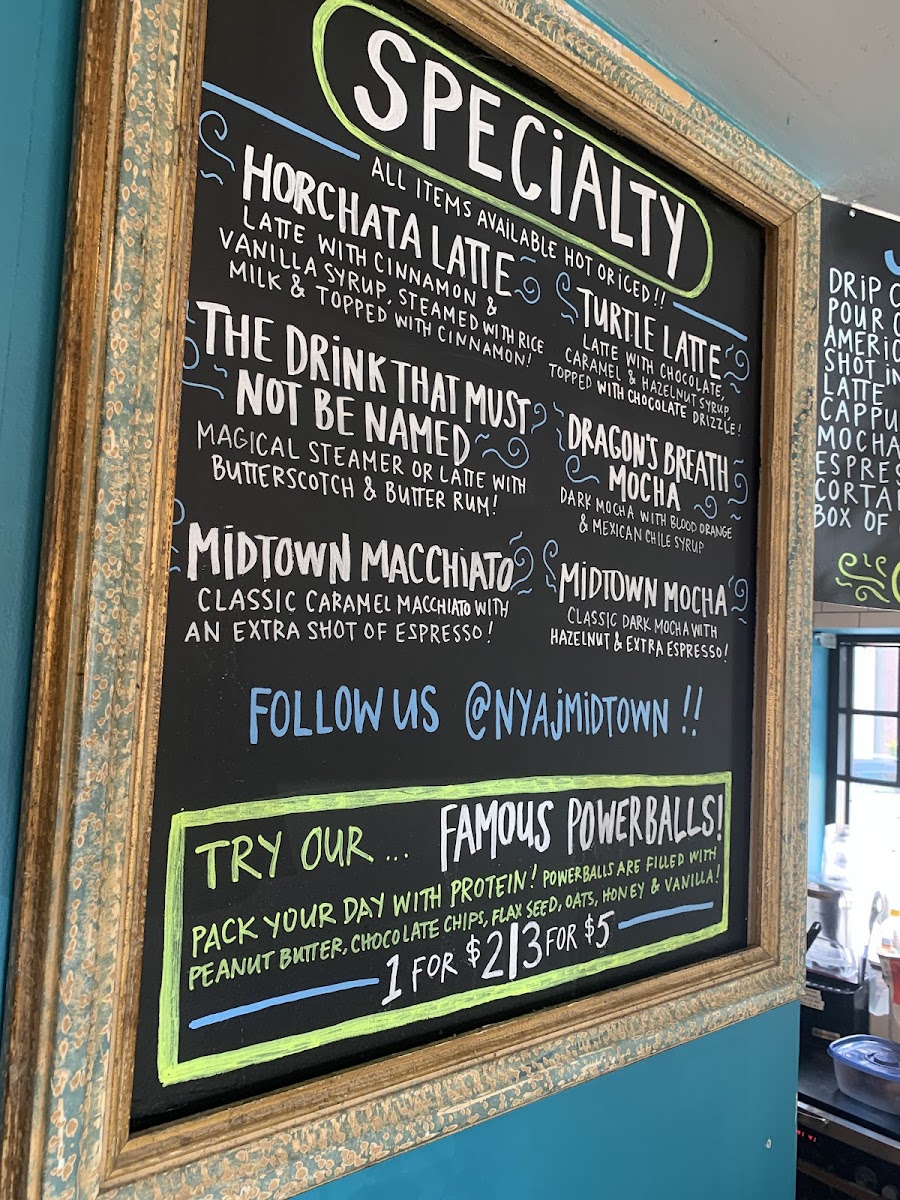 SPECIALTY
ALL ITEMS AVAILABLE HOT OR ICED!!
HORCHATA LATTE
LATTE WITH CINNAMON &
VANILLA SYRUP, STEAMED WITH RICE
MILK & TOPPED WITH CINNAMON!
THE DRINK THAT MUST
NOT BE NAMED
MAGICAL STEAMER OR LATTE WITH
BUTTERSCOTCH & BUTTER RUM!
MIDTOWN MACCHIATO
CLASSIC CARAMEL MACCHIATO WITH
AN EXTRA SHOT OF ESPRESSO!
TURTLE LATTE
LATTE WITH CHOCOLATE,
CARAMEL & HAZELNUT SYRUP,
TOPPED WITH CHOCOLATE DRIZZLE!
DRAGON'S BREATH
MOCHA
DARK MOCHA WITH BLOOD ORANGE
& MEXICAN CHILE SYRUP
MIDTOWN MOCHA
CLASSIC DARK MOCHA WITH
HAZELNUT & EXTRA ESPRESSO!
FOLLOW US @NYAJMIDTOWN !!
TRY OUR... FAMOUS POWERBALLS!
PACK YOUR DAY WITH PROTEIN! POWERBALLS ARE FILLED WITH
PEANUT BUTTER, CHOCOLATE CHIPS, FLAX SEED, OATS, HONEY & VANILLA!
1 FOR $2 | 3 FOR $5
DRIP
POUR
SHOT
LATTE
MOCHA
BOX OF